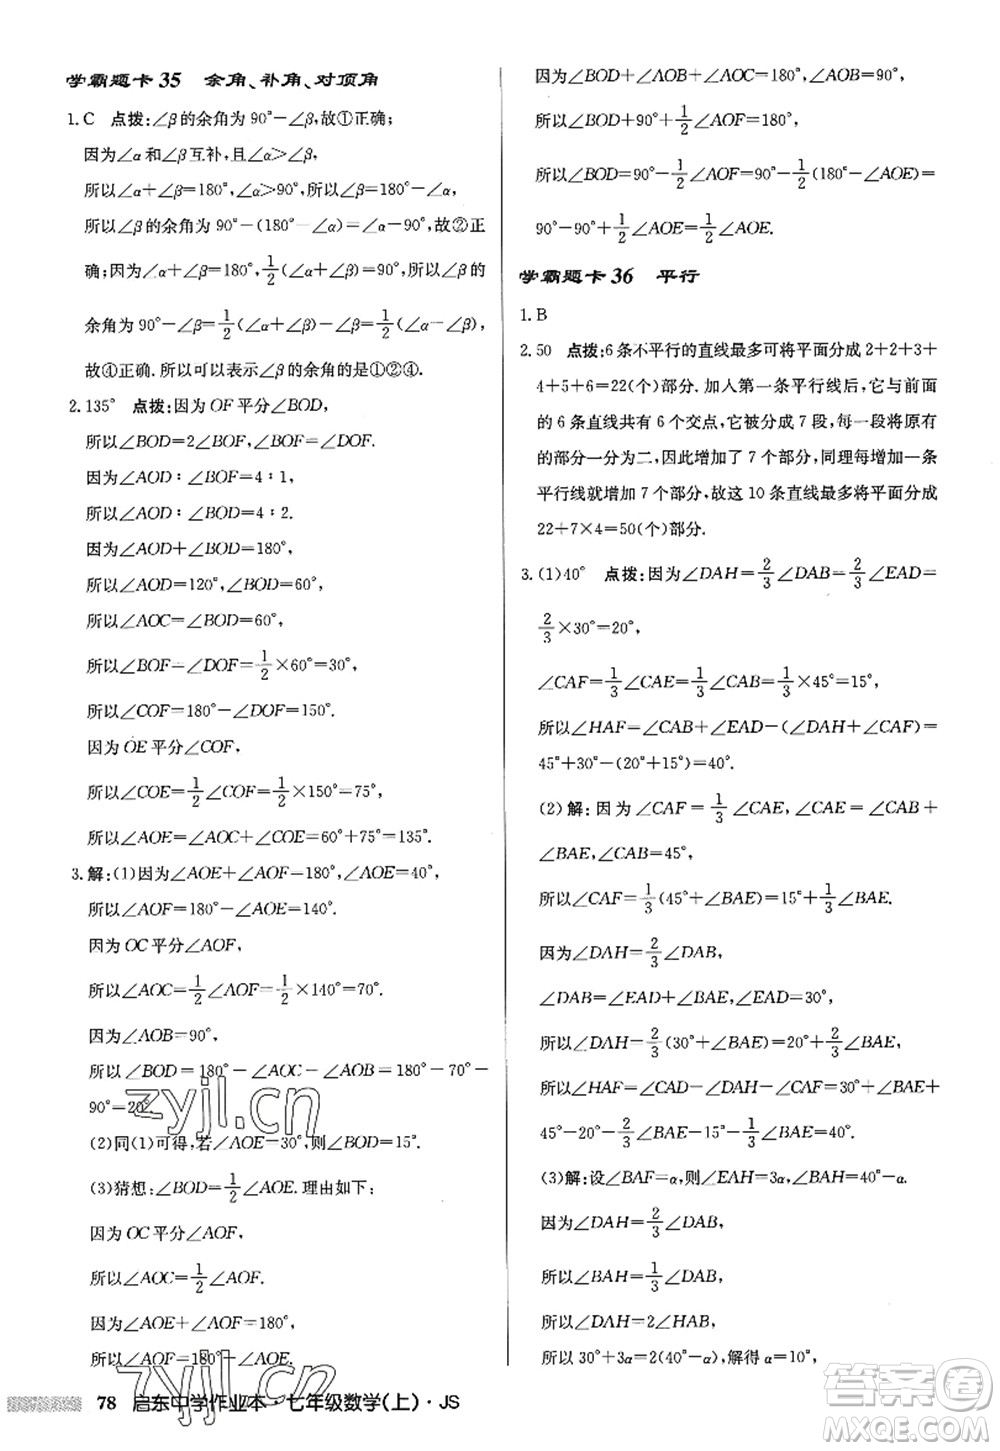 学霸题卡 35 余角、补角、对顶角
1.C 点拨:∠β的余角为90°-∠β,故①正确;
因为∠α和∠β互补,且∠α>∠β,
所以∠α+∠β=180°,∠α>90°,所以∠β=180°-∠α,
所以∠β的余角为90°-(180°-∠α)=∠α-90°,故②正
确;因为∠α+∠β=180°,所以1/2(∠α+∠β)=90°,所以∠β的
余角为90°-∠β=1/2(∠α+∠β)-∠β=1/2(∠α-∠β),
故④正确.所以可以表示∠β的余角的是①②④.
2.135° 点拨:因为OF平分∠BOD,
所以∠BOD=2∠BOF,∠BOF=∠DOF.
因为∠AOD∶∠BOF=4∶1,
所以∠AOD∶∠BOD=4∶2.
因为∠AOD+∠BOD=180°,
所以∠AOD=120°,∠BOD=60°,
所以∠AOC=∠BOD=60°,
所以∠BOF=∠DOF=1/2×60°=30°,
所以∠COF=180°-∠DOF=150°.
因为OE平分∠COF,
所以∠COE=1/2∠COF=1/2×150°=75°,
所以∠AOE=∠AOC+∠COE=60°+75°=135°.
3.解:(1)因为∠AOE+∠AOF=180°,∠AOE=40°,
所以∠AOF=180°-∠AOE=140°.
因为OC平分∠AOF,
所以∠AOC=1/2∠AOF=1/2×140°=70°.
因为∠AOB=90°,
所以∠BOD=180°-∠AOC-∠AOB=180°-70°-
90°=20°.
(2)同(1)可得,若∠AOE=30°,则∠BOD=15°.
(3)猜想:∠BOD=1/2∠AOE.理由如下:
因为OC平分∠AOF,
所以∠AOC=1/2∠AOF.
因为∠AOE+∠AOF=180°,
所以∠AOF=180°-∠AOE.
因为∠BOD+∠AOB+∠AOC=180°,∠AOB=90°,
所以∠BOD+90°+1/2∠AOF=180°,
所以∠BOD=90°-1/2∠AOF=90°-1/2(180°-∠AOE)=
90°-90°+1/2∠AOE=1/2∠AOE.
学霸题卡 36 平行
1.B
2.50 点拨:6条不平行的直线最多可将平面分成2+2+3+
4+5+6=22(个)部分.加入第一条平行线后,它与前面
的6条直线共有6个交点,它被分成7段,每一段将原有
的部分一分为二,因此增加了7个部分,同理每增加一条
平行线就增加7个部分,故这10条直线最多将平面分成
22+7×4=50(个)部分.
3.(1)40° 点拨:因为∠DAH=2/3∠DAB=2/3∠EAD=
2/3×30°=20°,
∠CAF=1/3∠CAE=1/3∠CAB=1/3×45°=15°,
所以∠HAF=∠CAB+∠EAD-(∠DAH+∠CAF)=
45°+30°-(20°+15°)=40°.
(2)解:因为∠CAF=1/3∠CAE,∠CAE=∠CAB+
∠BAE,∠CAB=45°,
所以∠CAF=1/3(45°+∠BAE)=15°+1/3∠BAE.
因为∠DAH=2/3∠DAB,
∠DAB=∠EAD+∠BAE,∠EAD=30°,
所以∠DAH=2/3(30°+∠BAE)=20°+2/3∠BAE,
所以∠HAF=∠CAD-∠DAH-∠CAF=30°+∠BAE+
45°-20°-2/3∠BAE-15°-1/3∠BAE=40°.
(3)解:设∠BAF=α,则∠EAH=3α,∠BAE=40°-α.
因为∠DAH=2/3∠DAB,
所以∠BAH=1/3∠DAB,
因为∠DAB=2∠HAB,
所以30°+3α=2(40°-α),解得α=10°,
78 启东中学作业本·七年级数学(上)·JS
zyjl.cn
答案圈
MXQE.COM